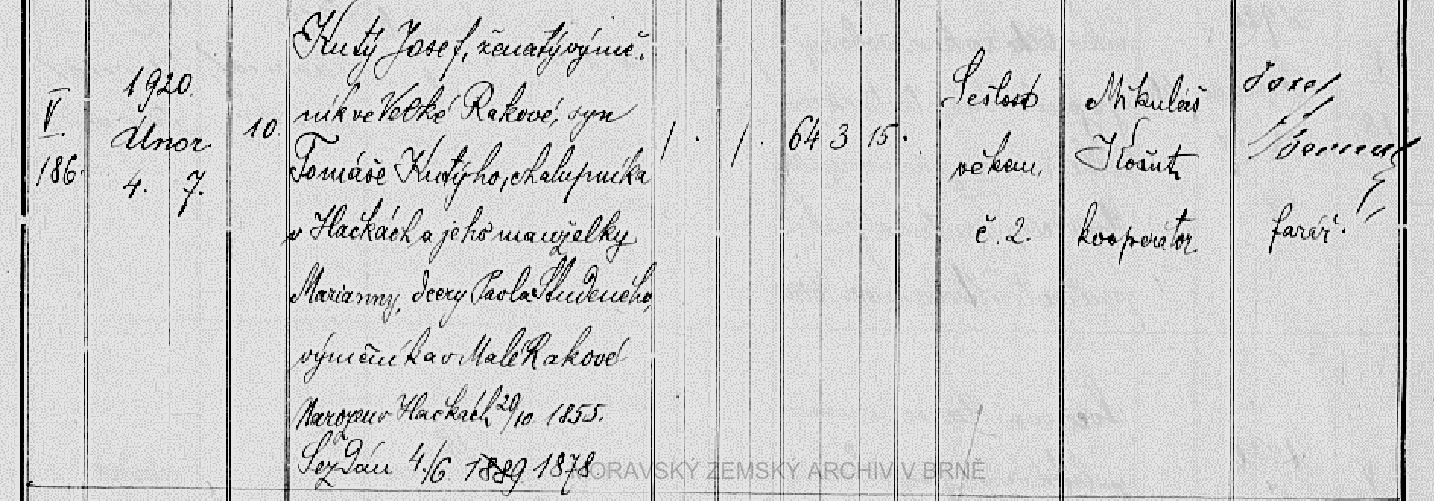 V. 186.
1920.
Únor
4. 7.
10.
Kutý Josef, ženatý výmě-
ník ve Velké Rakové, syn
Tomáše Kutýho, chalupníka
v Hačkách a jeho manželky
Marianny, dcery Pavla Studeného,
výměníka v Malé Rakové
Narozen v Hačkách 20/10. 1855.
Sezdán 4./6. 1889 1878
1 . 1. 64 3 15.
Sešlost
věkem,
č. 2.
Mikuláš
Košut
kooperátor
Josef
farář.
MORAVSKÝ ZEMSKÝ ARCHIV V BRNĚ